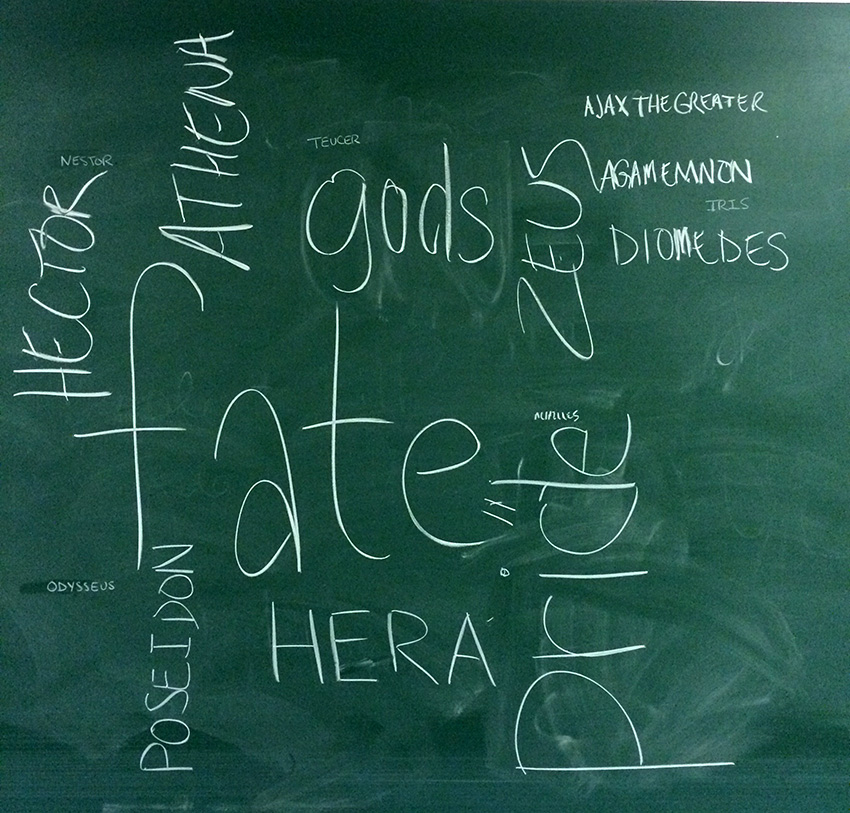 ATHENA
AJAX THE GREATER
TEUCER
NESTOR
gods
ZEUS
AGAMEMNON
IRIS
HECTOR
DIOMEDES
fate
ACHILLES
pride
ODYSSEUS
POSEIDON
HERA